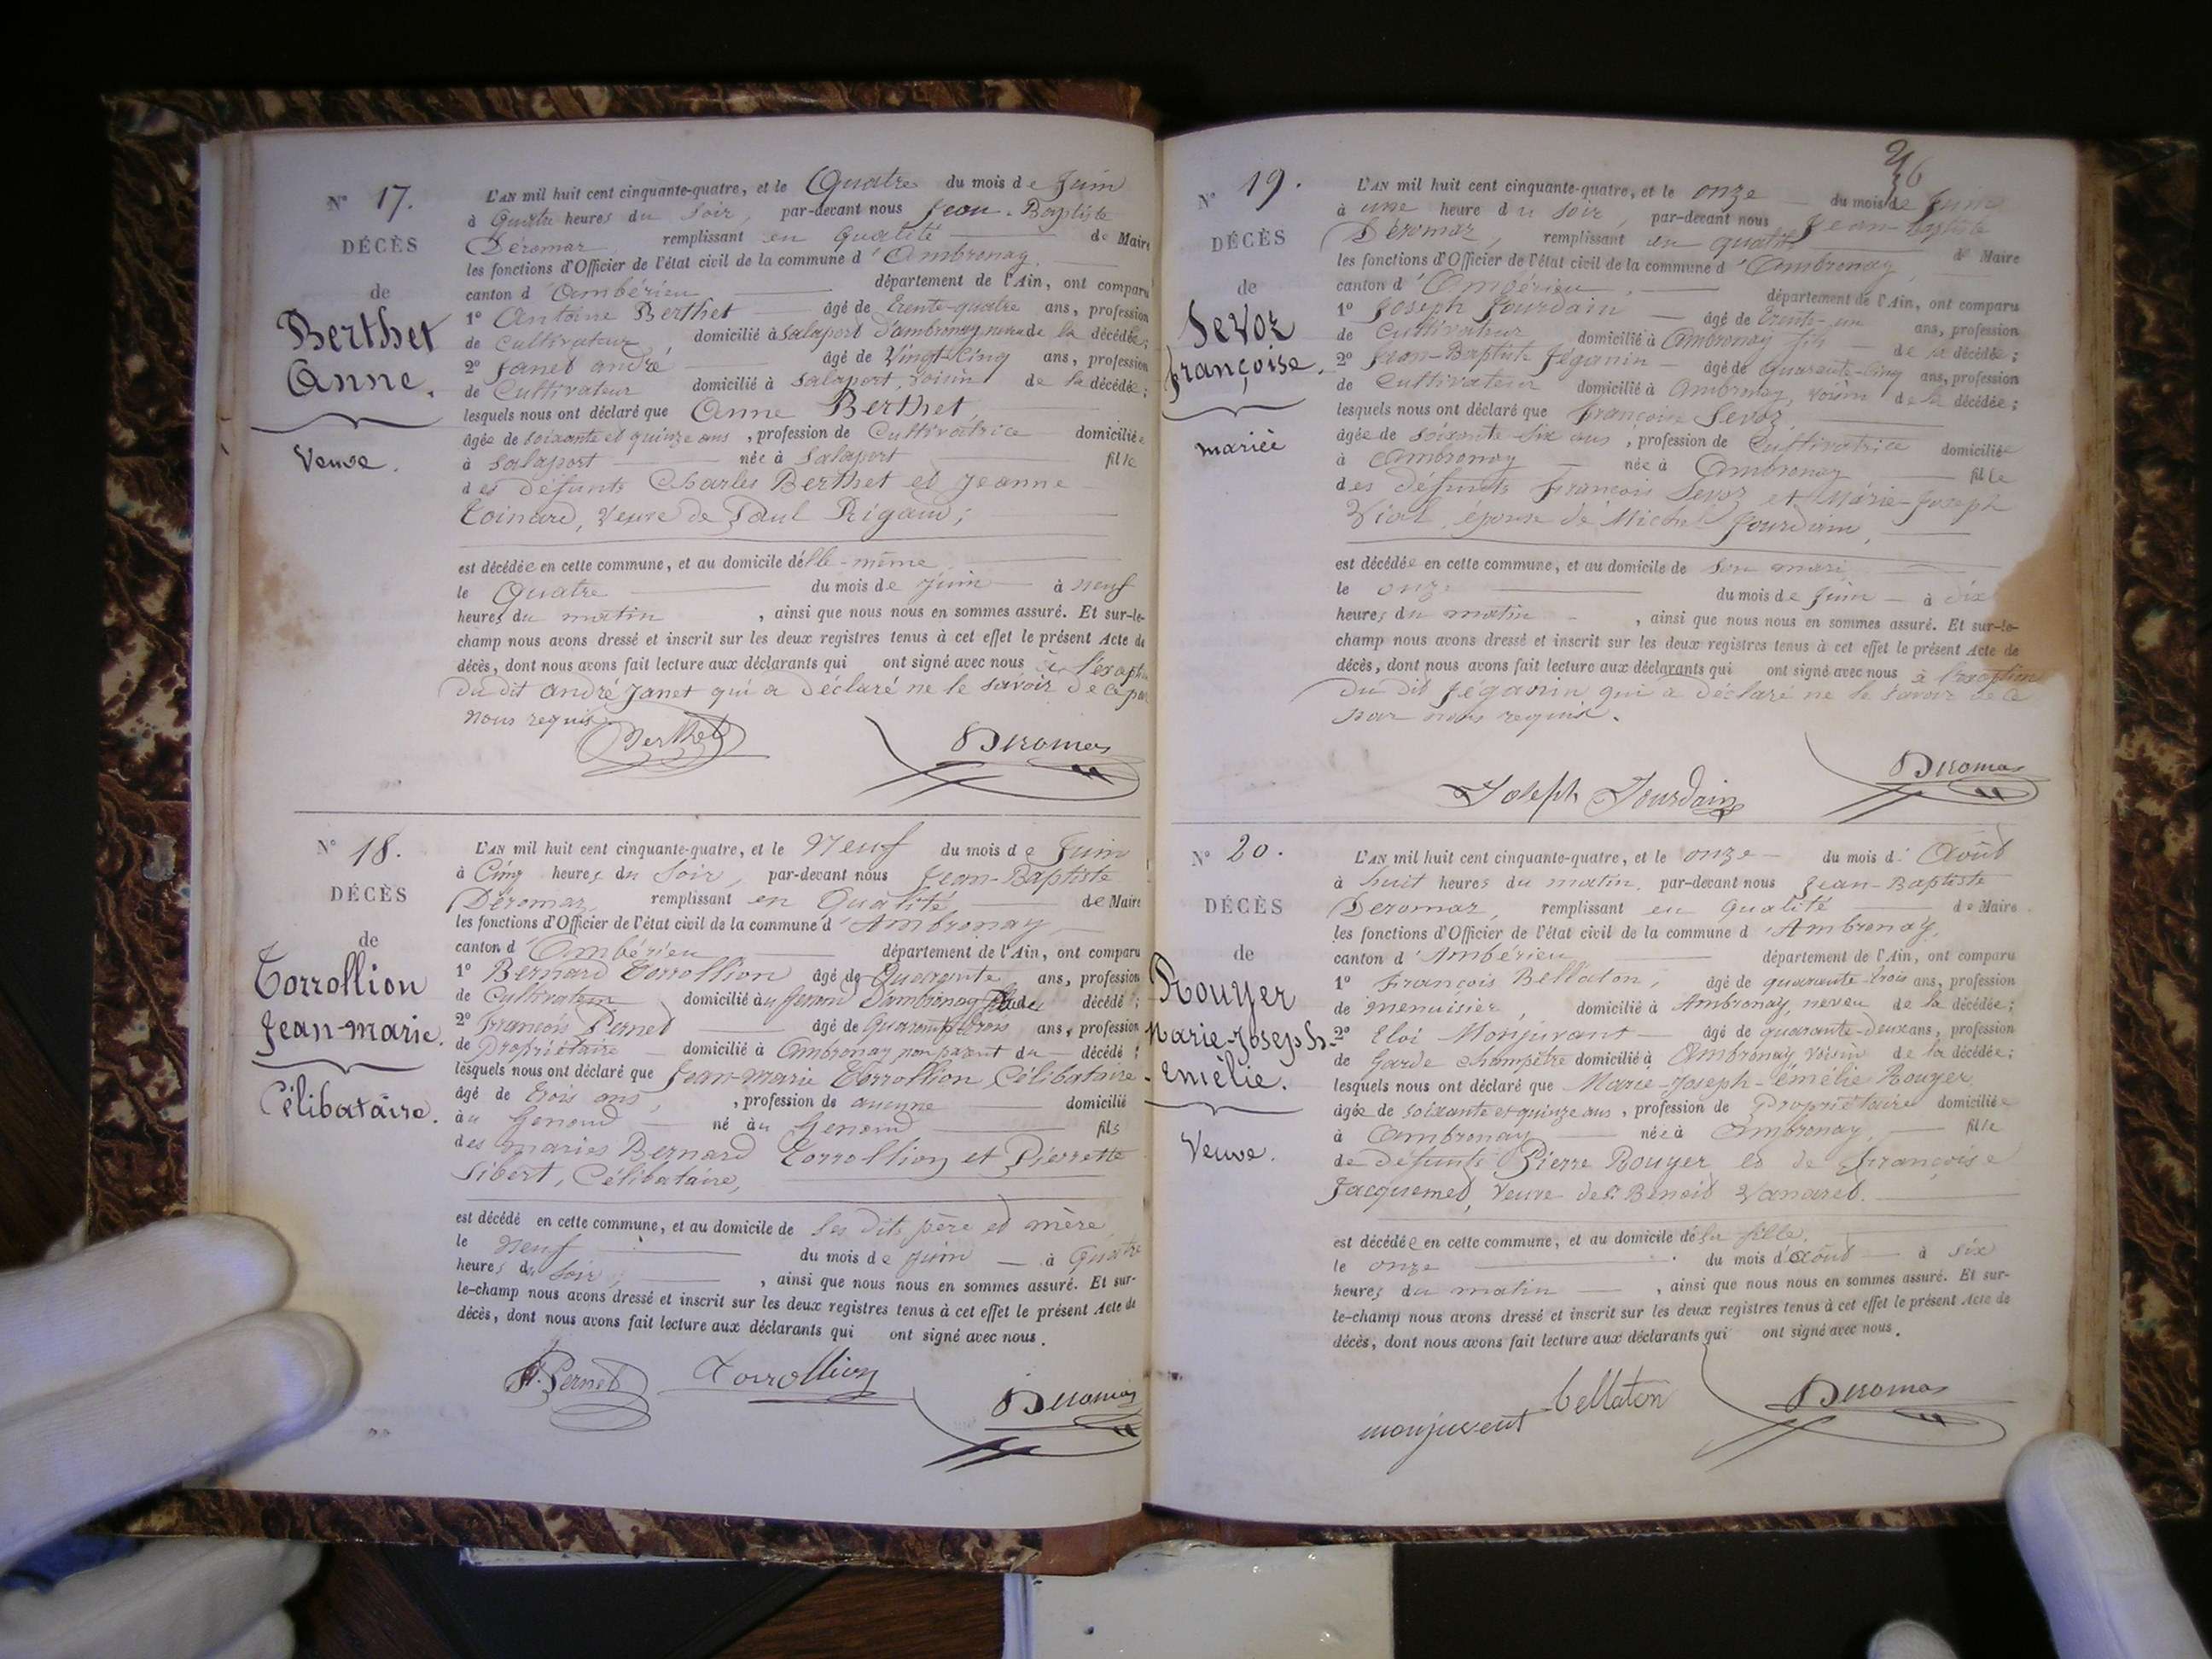 N° 17.
DÉCÈS
de
Berthet
Anne.
Veuve.
L'AN mil huit cent cinquante-quatre, et le Quatre du mois de Juin
à Quatre heures du Soir, par-devant nous Jean-Baptiste
Déromas remplissant en Qualité de Maire
les fonctions d'Officier de l'état civil de la commune d'Ambronay,
canton d'Ambérieu département de l'Ain, ont comparu
1° Antoine Berthet âgé de trente-quatre ans, profession
de Cultivateur domicilié à Salaport d'ambronay neveu de la décédée;
2° Janet andré âgé de Vingt-Cinq ans, profession
de Cultivateur domicilié à Salaport, voisin de la décédée;
lesquels nous ont déclaré que Anne Berthet,
âgée de soixante et quinze ans, profession de Cultivatrice domiciliée
à Salaport née à Salaport fille
des défunts Charles Berthet et Jeanne
Toinard, Veuve de Paul Rigaud;
est décédée en cette commune, et au domicile d'elle-même
le Quatre du mois de Juin à neuf
heures du matin, ainsi que nous nous en sommes assuré. Et sur-le-
champ nous avons dressé et inscrit sur les deux registres tenus à cet effet le présent Acte de
décès, dont nous avons fait lecture aux déclarants qui ont signé avec nous à l'exception
du dit andré Janet qui a déclaré ne le savoir de ce par
nous requis.
Berthet Deromas
N° 18.
DÉCÈS
de
Torrollion
Jean-marie.
Célibataire.
L'AN mil huit cent cinquante-quatre, et le Neuf du mois de Juin
à Cinq heures du Soir, par-devant nous Jean-Baptiste
Déromas, remplissant en Qualité de Maire
les fonctions d'Officier de l'état civil de la commune d'Ambronay
canton d'Ambérieu département de l'Ain, ont comparu
1° Bernard Torrollion âgé de Quarante ans, profession
de Cultivateur domicilié au Genoud D'ambronay décédé;
2° François Pernet âgé de Quarante trois ans, profession
de Propriétaire domicilié à Ambronay non parent du décédé;
lesquels nous ont déclaré que Jean-Marie Torrollion Célibataire
âgé de trois ans, profession de aucune domicilié
au Genoud né au Genoud fils
des mariés Bernard Torrollion et Pierrette
Sibert, Célibataire,
est décédé en cette commune, et au domicile de Ses dits père et mère
le neuf du mois de Juin à Quatre
heures du Soir, ainsi que nous nous en sommes assuré. Et sur-
le-champ nous avons dressé et inscrit sur les deux registres tenus à cet effet le présent Acte de
décès, dont nous avons fait lecture aux déclarants qui ont signé avec nous.
F. Pernet Torrollion Deromas
26
N° 19.
DÉCÈS
de
Sevoz
françoise.
mariée
L'AN mil huit cent cinquante-quatre, et le onze du mois de Juin
à une heure du Soir, par-devant nous Jean-Baptiste
Déromas, remplissant en qualité de Maire
les fonctions d'Officier de l'état civil de la commune d'Ambronay,
canton d'Ambérieu, département de l'Ain, ont comparu
1° Joseph Jourdain âgé de trente-un ans, profession
de Cultivateur domicilié à Ambronay fils de la décédée;
2° Jean-Baptiste Féganin âgé de Quarante-Cinq ans, profession
de Cultivateur domicilié à Ambronay, voisin de la décédée;
lesquels nous ont déclaré que Françoise Sevoz
âgée de soixante six ans, profession de Cultivatrice domiciliée
à Ambronay née à Ambronay fille
des défunts François Sevoz et Marie-Joseph
Viol, épouse de Michel Jourdain,
est décédée en cette commune, et au domicile de son mari
le onze du mois de Juin à dix
heures du matin, ainsi que nous nous en sommes assuré. Et sur-le-
champ nous avons dressé et inscrit sur les deux registres tenus à cet effet le présent Acte de
décès, dont nous avons fait lecture aux déclarants qui ont signé avec nous à l'exception
du dit Féganin qui a déclaré ne le savoir de ce
par nous requis.
Joseph Jourdain Deromas
N° 20.
DÉCÈS
de
Rouyer
Marie-Joseph-
emélie.
Veuve.
L'AN mil huit cent cinquante-quatre, et le onze du mois d'Août
à huit heures du matin, par-devant nous Jean-Baptiste
Deromas, remplissant en Qualité de Maire
les fonctions d'Officier de l'état civil de la commune d'Ambronay,
canton d'Ambérieu département de l'Ain, ont comparu
1° François Bellaton, âgé de quarante trois ans, profession
de menuisier, domicilié à Ambronay, neveu de la décédée;
2° Eloi Monjuvent âgé de quarante-deux ans, profession
de Garde Champêtre domicilié à Ambronay, voisin de la décédée;
lesquels nous ont déclaré que Marie-Joseph-émélie Rouyer
âgée de soixante et quinze ans, profession de Propriétaire domiciliée
à Ambronay née à Ambronay, fille
de défunts Pierre Rouyer et de françoise
Jacquemet, Veuve de Sr Benoit Vanaret.
est décédée en cette commune, et au domicile de sa fille,
le onze du mois d'août à six
heures du matin, ainsi que nous nous en sommes assuré. Et sur-
le-champ nous avons dressé et inscrit sur les deux registres tenus à cet effet le présent Acte de
décès, dont nous avons fait lecture aux déclarants qui ont signé avec nous.
monjuvent bellaton Deromas